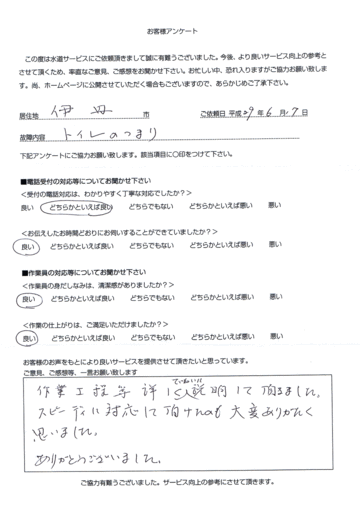 お客様アンケート
この度は水道サービスにご依頼頂きまして誠に有難うございました。今後、より良いサービス向上の参考と
させて頂くため、率直なご意見、ご感想をお聞かせ下さい。お忙しい中、恐れ入りますがご協力お願い致しま
す。尚、ホームページに公開させていただく場合もございますので、あらかじめご了承下さい。
居住地 伊丹 市 ご依頼日 平成 29 年 6 月 7 日
故障内容 トイレのつまり
下記アンケートにご協力お願い致します。該当項目に〇印をつけて下さい。
■電話受付の対応等についてお聞かせ下さい
<受付の電話対応は、わかりやすく丁寧な対応でしたか？>
良い どちらかといえば良い どちらでもない どちらかといえば悪い 悪い
<お伝えしたお時間どおりにお伺いすることができていましたか？>
良い どちらかといえば良い どちらでもない どちらかといえば悪い 悪い
■作業員の対応等についてお聞かせ下さい
<作業員の身だしなみは、清潔感がありましたか？>
良い どちらかといえば良い どちらでもない どちらかといえば悪い 悪い
<作業の仕上がりは、ご満足いただけましたか？>
良い どちらかといえば良い どちらでもない どちらかといえば悪い 悪い
お客様のお声をもとにより良いサービスを提供させて頂きたいと思っています。
ご意見、ご感想等、一言お願い致します
ていねいに
作業工程等詳しく説明して頂きました。
スピーディに対応して頂けたのも大変ありがたく
思いました。
ありがとうございました。
ご協力有難うございました。サービス向上の参考にさせて頂きます。